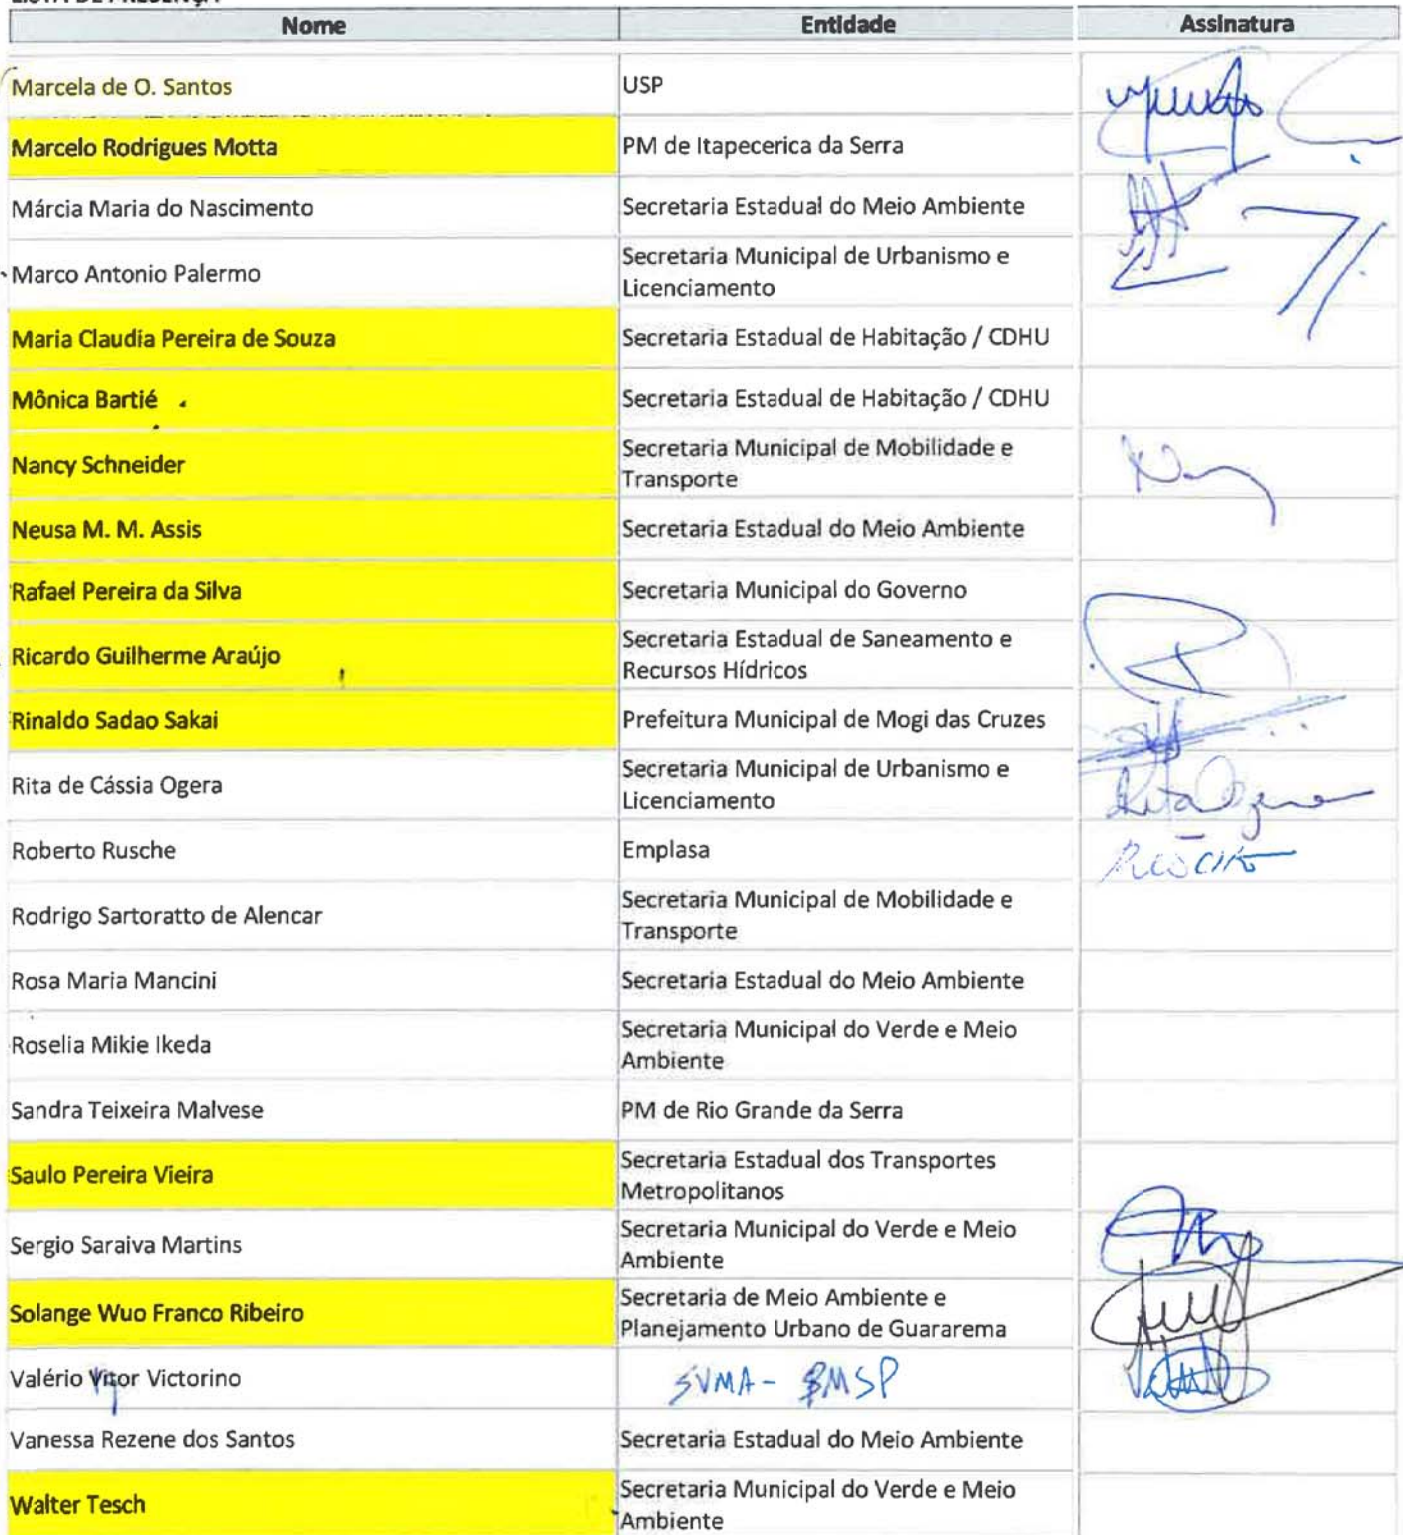 LISTA DE PRESENÇA
Nome Entidade Assinatura
Marcela de O. Santos USP
Marcelo Rodrigues Motta PM de Itapecerica da Serra
Márcia Maria do Nascimento Secretaria Estadual do Meio Ambiente
Marco Antonio Palermo Secretaria Municipal de Urbanismo e
Licenciamento
Maria Claudia Pereira de Souza Secretaria Estadual de Habitação / CDHU
Mônica Bartié Secretaria Estadual de Habitação / CDHU
Nancy Schneider Secretaria Municipal de Mobilidade e
Transporte
Neusa M. M. Assis Secretaria Estadual do Meio Ambiente
Rafael Pereira da Silva Secretaria Municipal do Governo
Ricardo Guilherme Araújo Secretaria Estadual de Saneamento e
Recursos Hídricos
Rinaldo Sadao Sakai Prefeitura Municipal de Mogi das Cruzes
Rita de Cássia Ogera Secretaria Municipal de Urbanismo e
Licenciamento Rita Ogera
Roberto Rusche Emplasa
Rodrigo Sartoratto de Alencar Secretaria Municipal de Mobilidade e
Transporte
Rosa Maria Mancini Secretaria Estadual do Meio Ambiente
Roselia Mikie Ikeda Secretaria Municipal do Verde e Meio
Ambiente
Sandra Teixeira Malvese PM de Rio Grande da Serra
Saulo Pereira Vieira Secretaria Estadual dos Transportes
Metropolitanos
Sergio Saraiva Martins Secretaria Municipal do Verde e Meio
Ambiente
Solange Wuo Franco Ribeiro Secretaria de Meio Ambiente e
Planejamento Urbano de Guararema
Valério Vitor Victorino SVMA - PMSP
Vanessa Rezene dos Santos Secretaria Estadual do Meio Ambiente
Walter Tesch Secretaria Municipal do Verde e Meio
Ambiente